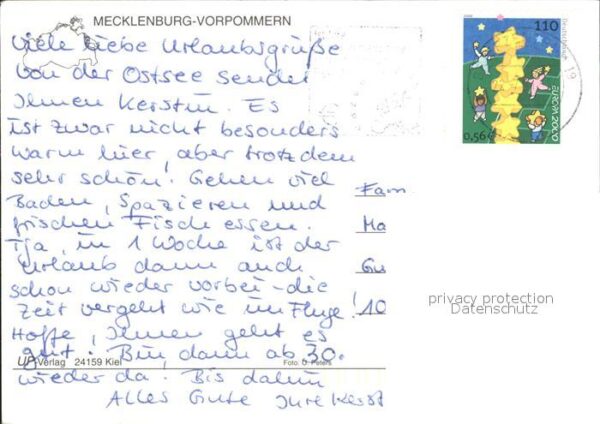 MECKLENBURG-VORPOMMERN
Viele liebe Urlaubsgrüße
von der Ostsee sendet
Ihnen Kerstin. Es
ist zwar nicht besonders
warm hier, aber trotzdem
sehr schön! Gehen viel
Baden, Spazieren und
frischen Fisch essen.
Tja, in 1 Woche ist der
Urlaub dann auch
schon wieder vorbei - die
Zeit vergeht wie im Fluge!
Hoffe, Ihnen geht es
gut. Bin dann ab 30.
wieder da. Bis dahin
Alles Gute Ihre Kerst
UP-Verlag 24159 Kiel
Foto: U. Peters
110
Deutschland
EUROPA 2000
0,56 €
19
Fam
Ma
Gu
10
privacy protection
Datenschutz